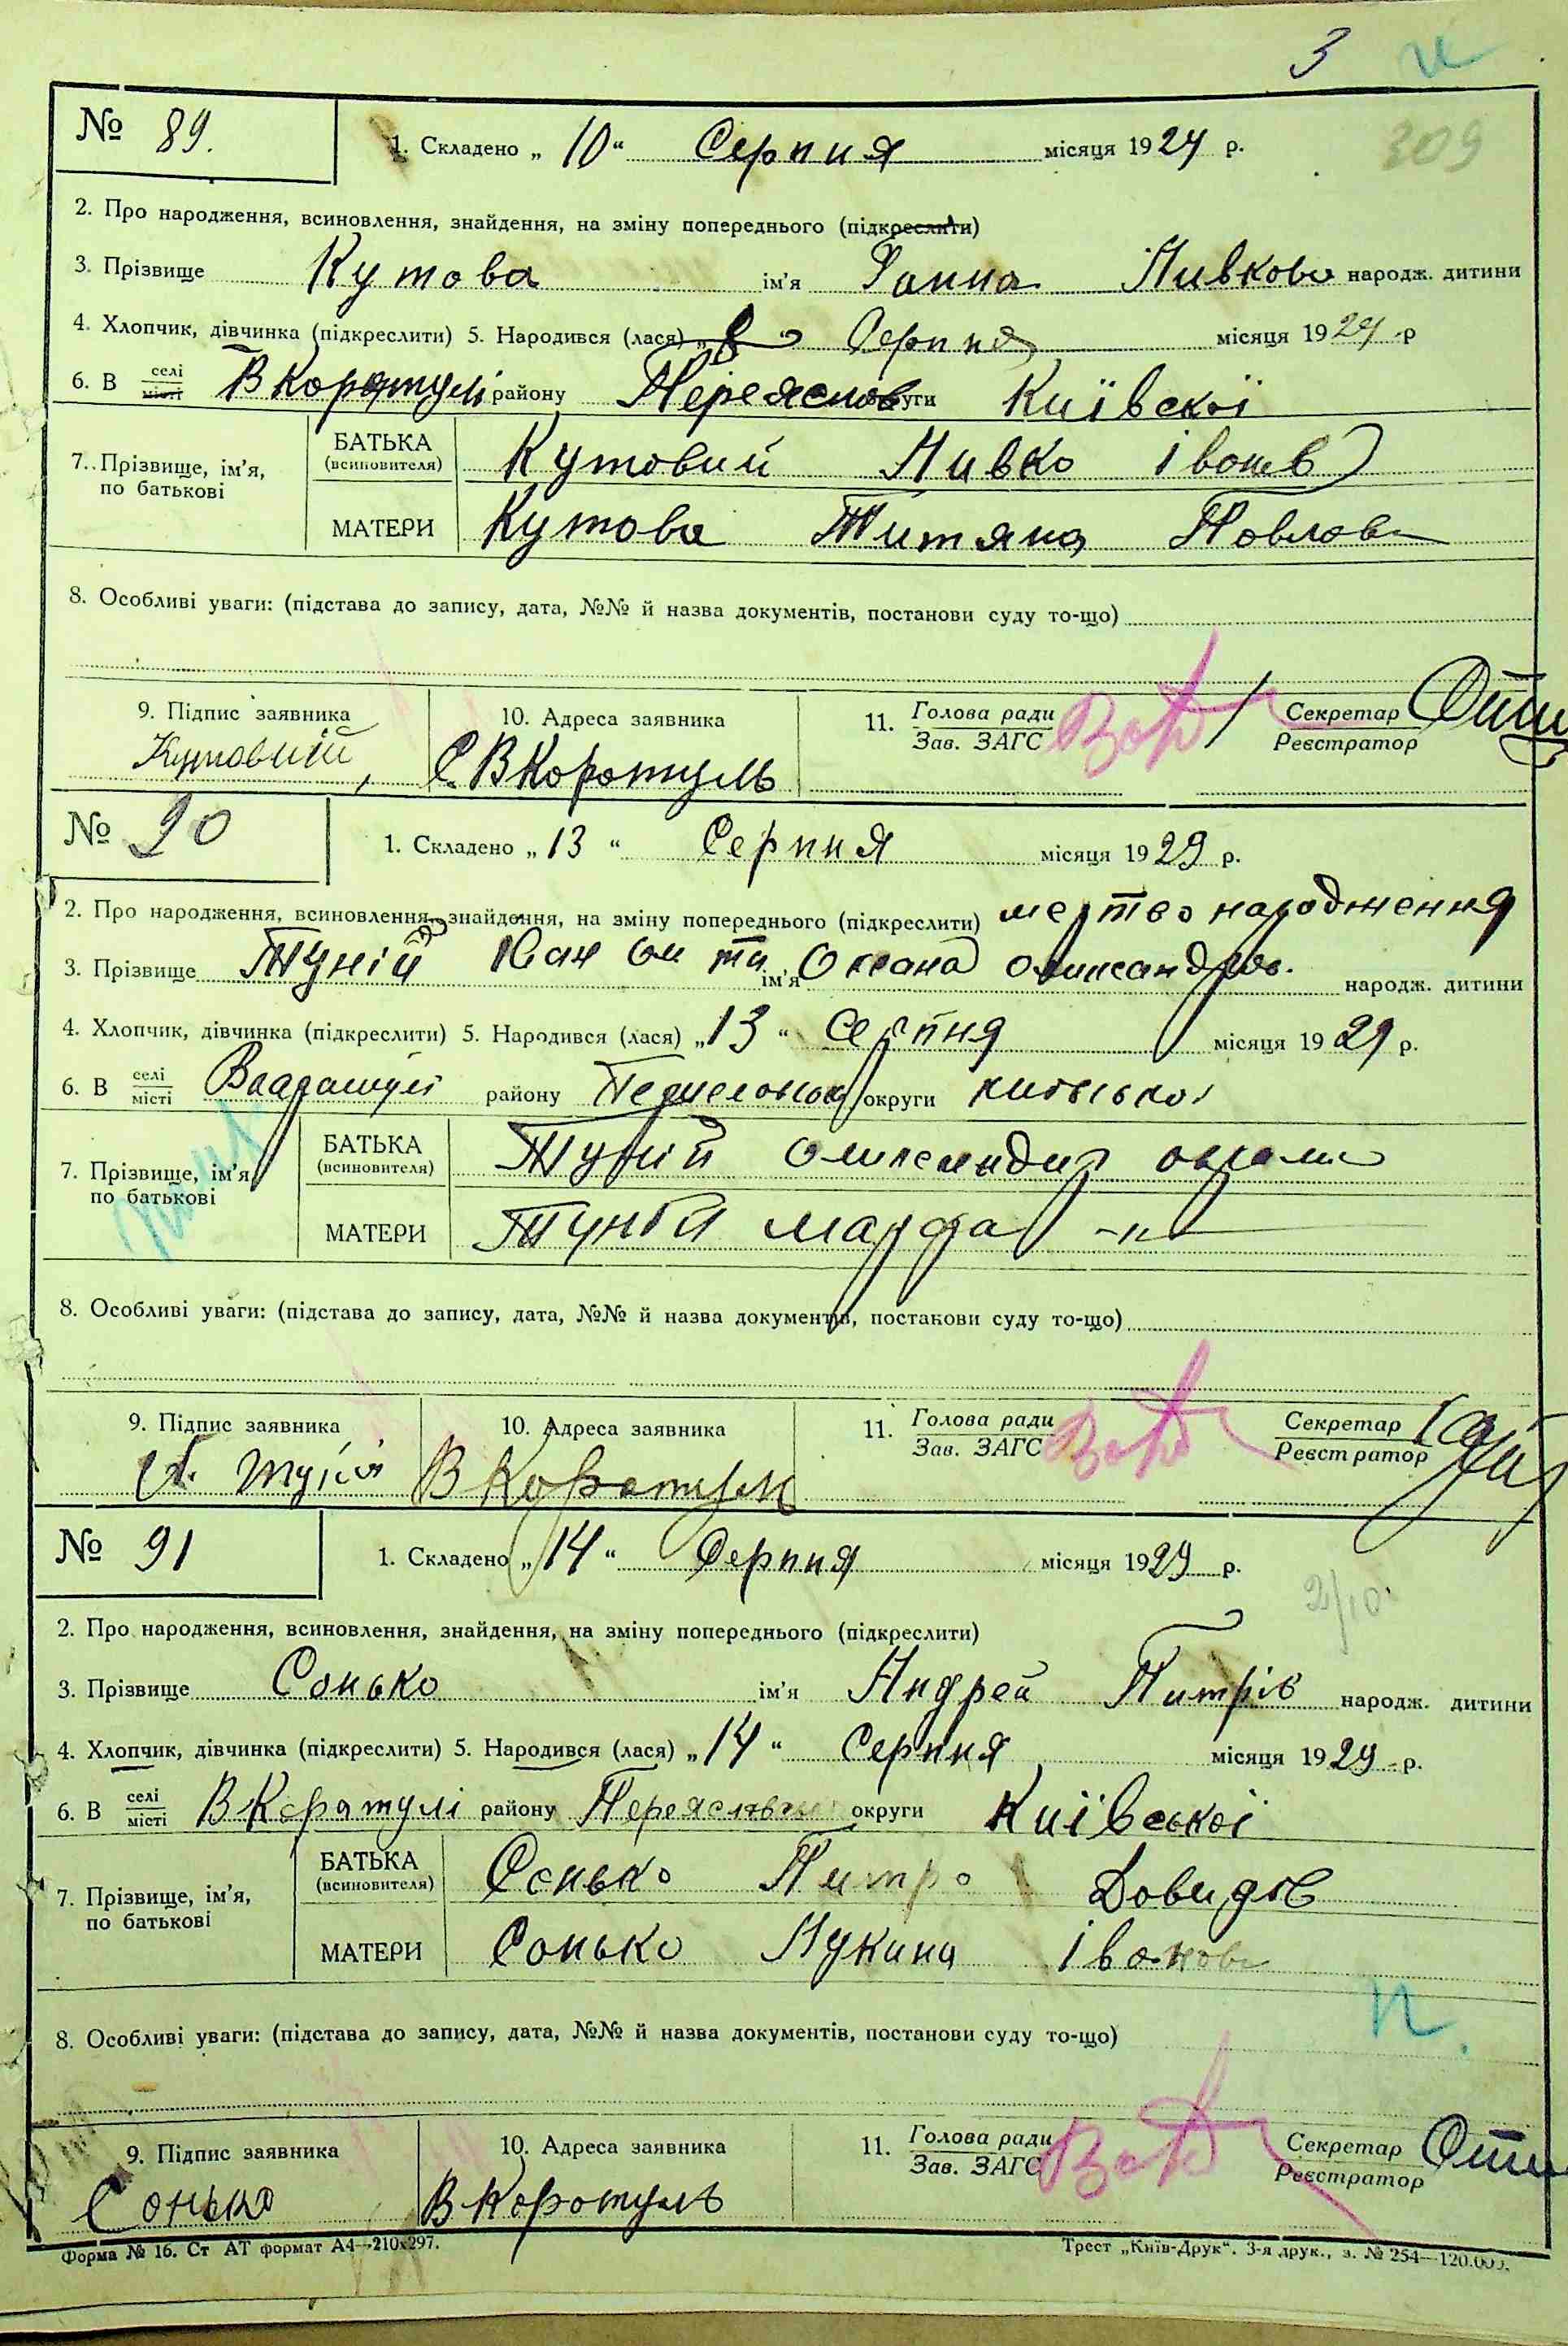 3
№ 89. 1. Складено „10“ Серпня місяця 1929 р. 309
2. Про народження, всиновлення, знайдення, на зміну попереднього (підкреслити)
3. Прізвище Кутова ім'я Ганна Пивкова народж. дитини
4. Хлопчик, дівчинка (підкреслити) 5. Народився (лася) „8“ Серпня місяця 1929 р
6. В селі/місті В Коратулі району Переяслов округи Київскої
7. Прізвище, ім'я, по батькові
БАТЬКА (всиновителя) Кутовий Пивко Іванов
МАТЕРИ Кутова Титяна Повлова
8. Особливі уваги: (підстава до запису, дата, №№ й назва документів, постанови суду то-що)
9. Підпис заявника 10. Адреса заявника 11. Голова ради/Зав. ЗАГС Секретар/Реєстратор
Кутовий С. В Коротуль
№ 90 1. Складено „13“ Серпня місяця 1929 р.
2. Про народження, всиновлення, знайдення, на зміну попереднього (підкреслити) мертво народження
3. Прізвище Туній Іван та ім'я Оксана народж. дитини
4. Хлопчик, дівчинка (підкреслити) 5. Народився (лася) „13“ Серпня місяця 1929 р.
6. В селі/місті району округи
7. Прізвище, ім'я, по батькові
БАТЬКА (всиновителя) Туній
МАТЕРИ Туній Марфа -"-
8. Особливі уваги: (підстава до запису, дата, №№ й назва документів, постанови суду то-що)
9. Підпис заявника 10. Адреса заявника 11. Голова ради/Зав. ЗАГС Секретар/Реєстратор
В Коратулі
№ 91 1. Складено „14“ Серпня місяця 1929 р.
2/10
2. Про народження, всиновлення, знайдення, на зміну попереднього (підкреслити)
3. Прізвище Сонько ім'я Андрей Питрів народж. дитини
4. Хлопчик, дівчинка (підкреслити) 5. Народився (лася) „14“ Серпня місяця 1929 р.
6. В селі/місті В Коратулі району округи Київської
7. Прізвище, ім'я, по батькові
БАТЬКА (всиновителя) Сонько Питро Довидов
МАТЕРИ Сонько Лукина Іванова
8. Особливі уваги: (підстава до запису, дата, №№ й назва документів, постанови суду то-що)
9. Підпис заявника 10. Адреса заявника 11. Голова ради/Зав. ЗАГС Секретар/Реєстратор
Сонько В Коротуль
Форма № 16. Ст АТ формат А4—210х297. Трест „Київ-Друк“. 3-я друк., з. № 254—120.000.